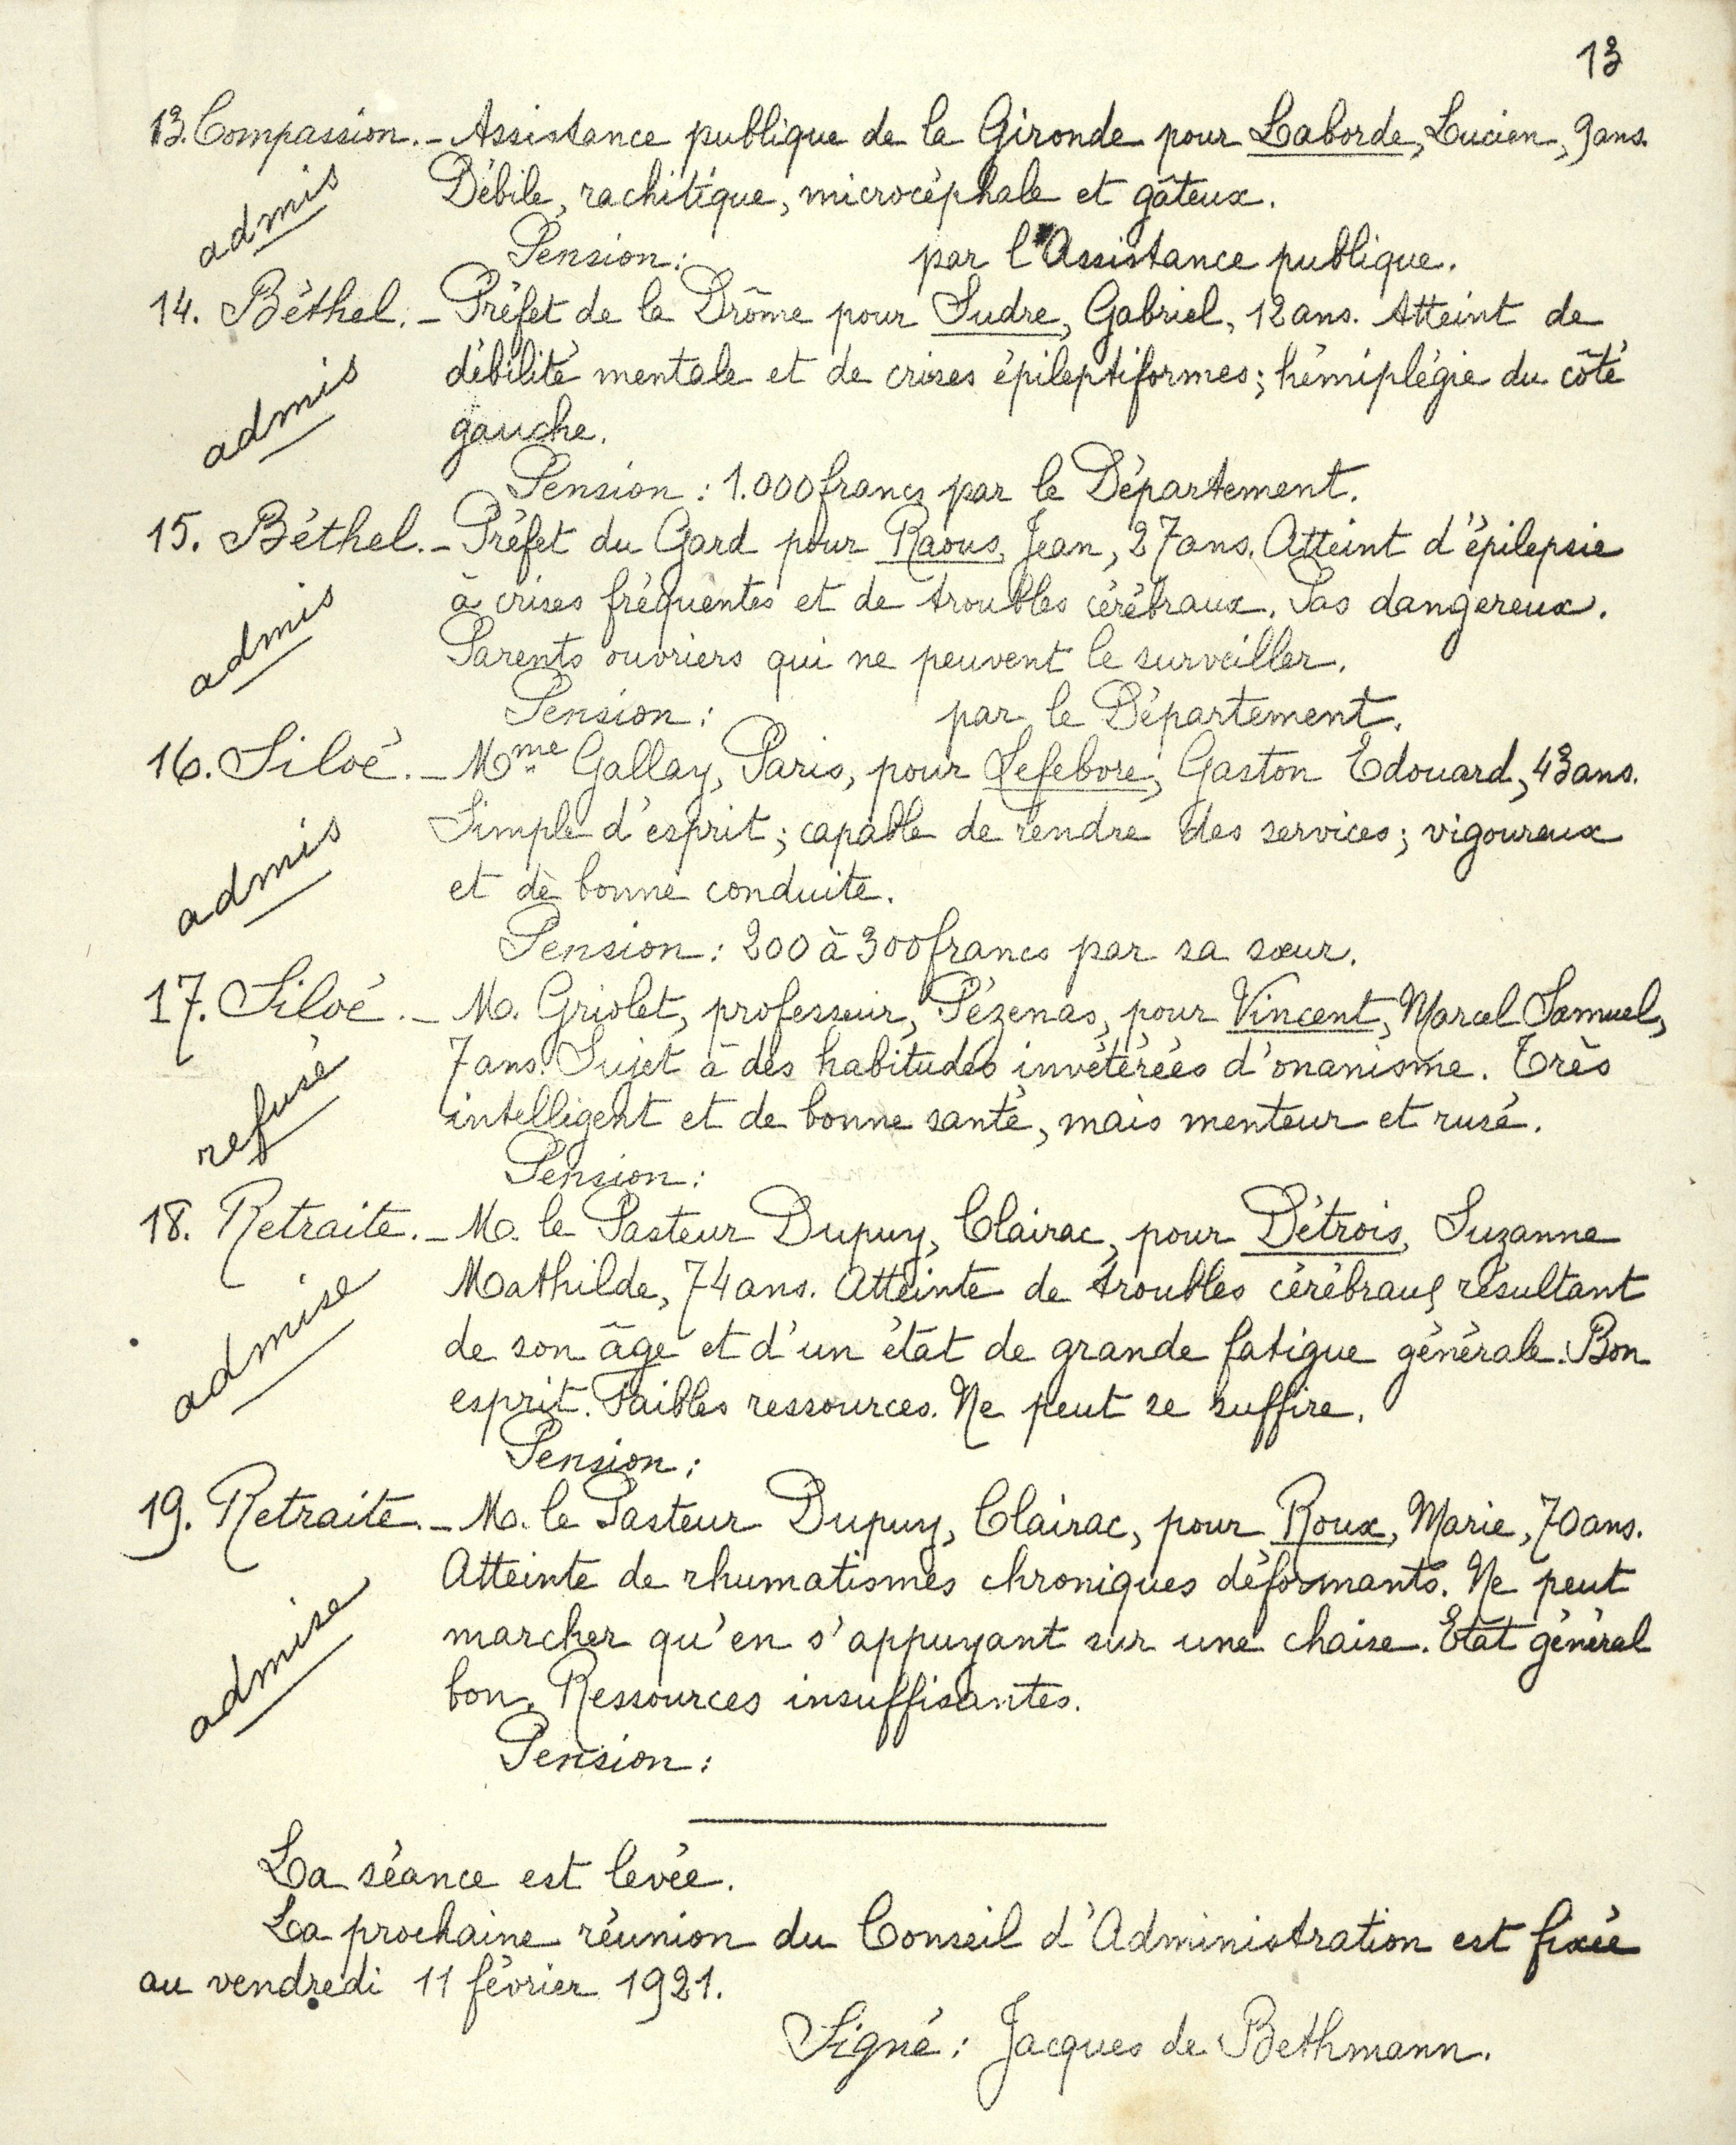 13
13. Compassion. - Assistance publique de la Gironde pour Laborde, Lucien, 9 ans.
admis
Débile, rachitique, microcéphale et gâteux.
Pension : par l'Assistance publique.
14. Béthel. - Préfet de la Drôme pour Sudre, Gabriel, 12 ans. Atteint de
admis
débilité mentale et de crises épileptiformes ; hémiplégie du côté
gauche.
Pension : 1.000 francs par le Département.
15. Béthel. - Préfet du Gard pour Raous, Jean, 27 ans. Atteint d'épilepsie
admis
à crises fréquentes et de troubles cérébraux. Pas dangereux.
Parents ouvriers qui ne peuvent le surveiller.
Pension : par le Département.
16. Siloé. - Mme Gallay, Paris, pour Lefebvre, Gaston Edouard, 43 ans.
admis
Simple d'esprit ; capable de rendre des services ; vigoureux
et de bonne conduite.
Pension : 200 à 300 francs par sa sœur.
17. Siloé. - M. Griolet, professeur, Pézenas, pour Vincent, Marcel Samuel,
refusé
7 ans. Sujet à des habitudes invétérées d'onanisme. Très
intelligent et de bonne santé, mais menteur et rusé.
Pension :
18. Retraite. - M. le Pasteur Dupuy, Clairac, pour Détrois, Suzanne
admise
Mathilde, 74 ans. Atteinte de troubles cérébraux résultant
de son âge et d'un état de grande fatigue générale. Bon
esprit. Faibles ressources. Ne peut se suffire.
Pension :
19. Retraite. - M. le Pasteur Dupuy, Clairac, pour Roux, Marie, 70 ans.
admise
Atteinte de rhumatismes chroniques déformants. Ne peut
marcher qu'en s'appuyant sur une chaise. Etat général
bon. Ressources insuffisantes.
Pension :
La séance est levée.
La prochaine réunion du Conseil d'Administration est fixée
au vendredi 11 février 1921.
Signé : Jacques de Bethmann.